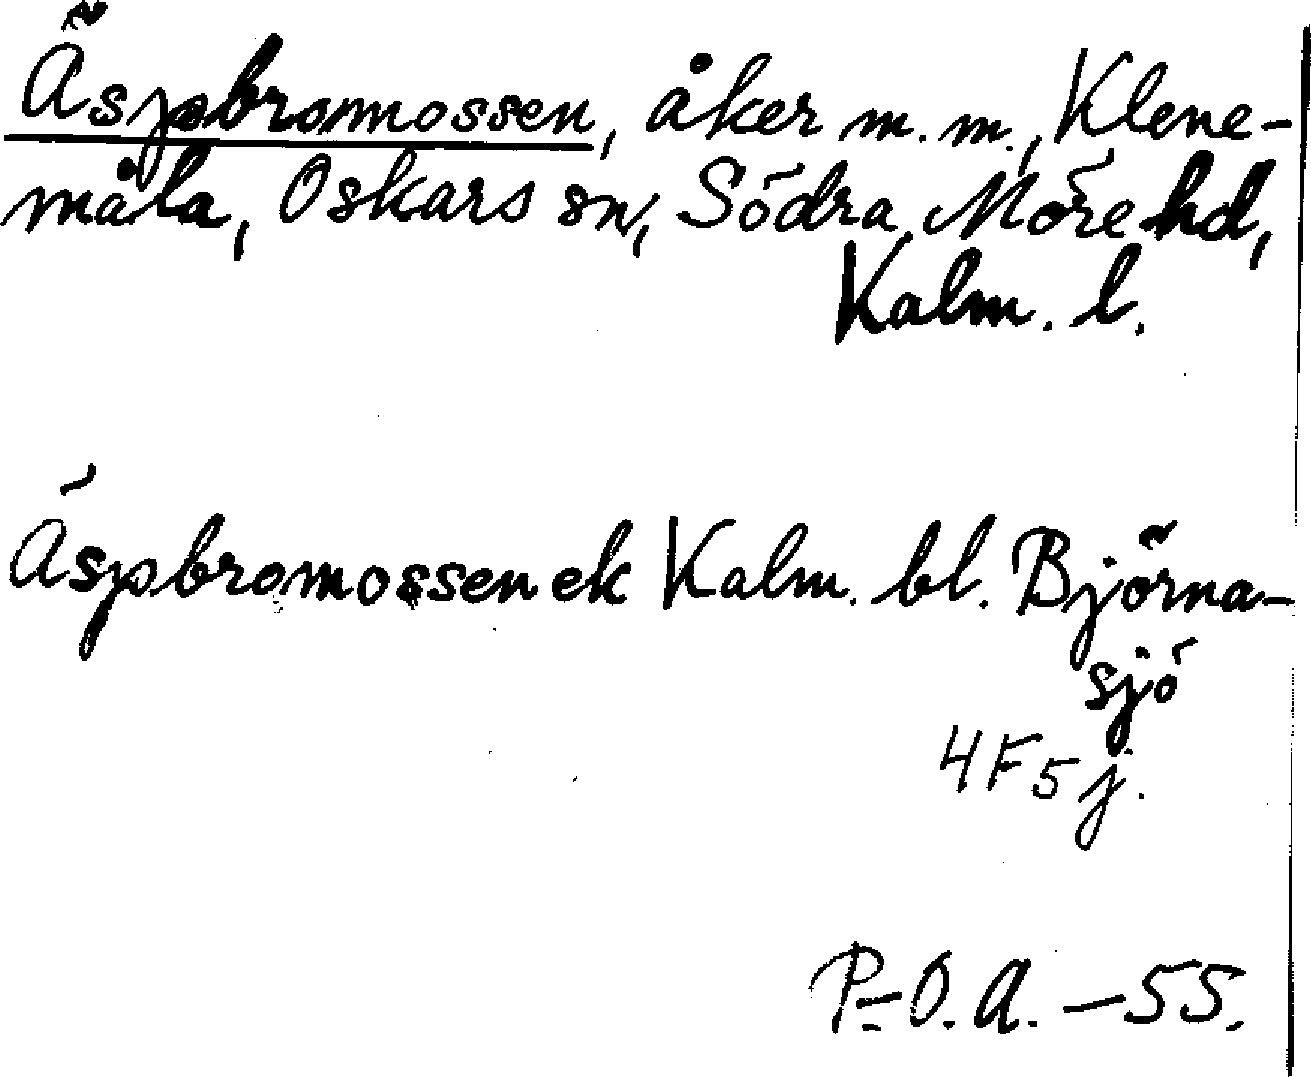 Äspbromossen, åker m.m., Klene-
måla, Oskars sn, Södra Möre hd,
Kalm. l.
Äspbromossen ek Kalm. bl. Björna-
sjö
4F5j.
P-O.A. -55.